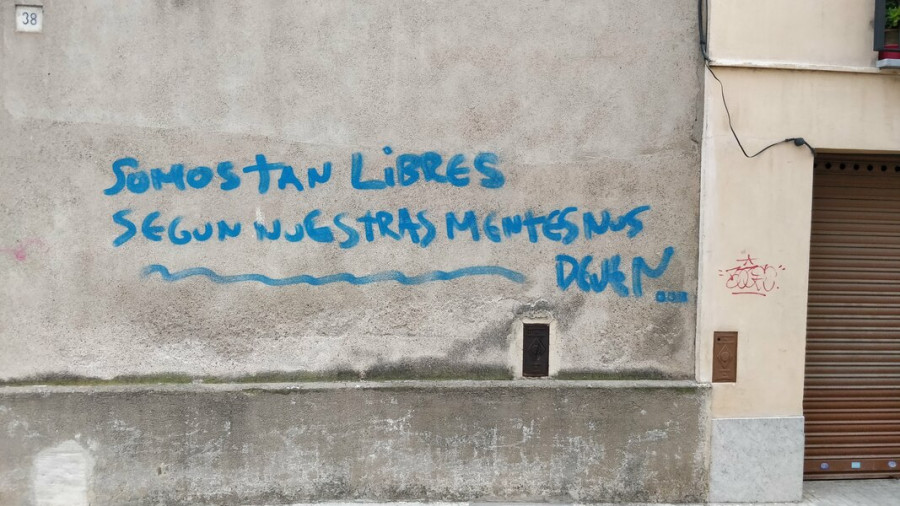 38
SOMOS TAN LiBRES
SEGUN NUESTRAS MENTES NUS
DEJEN...